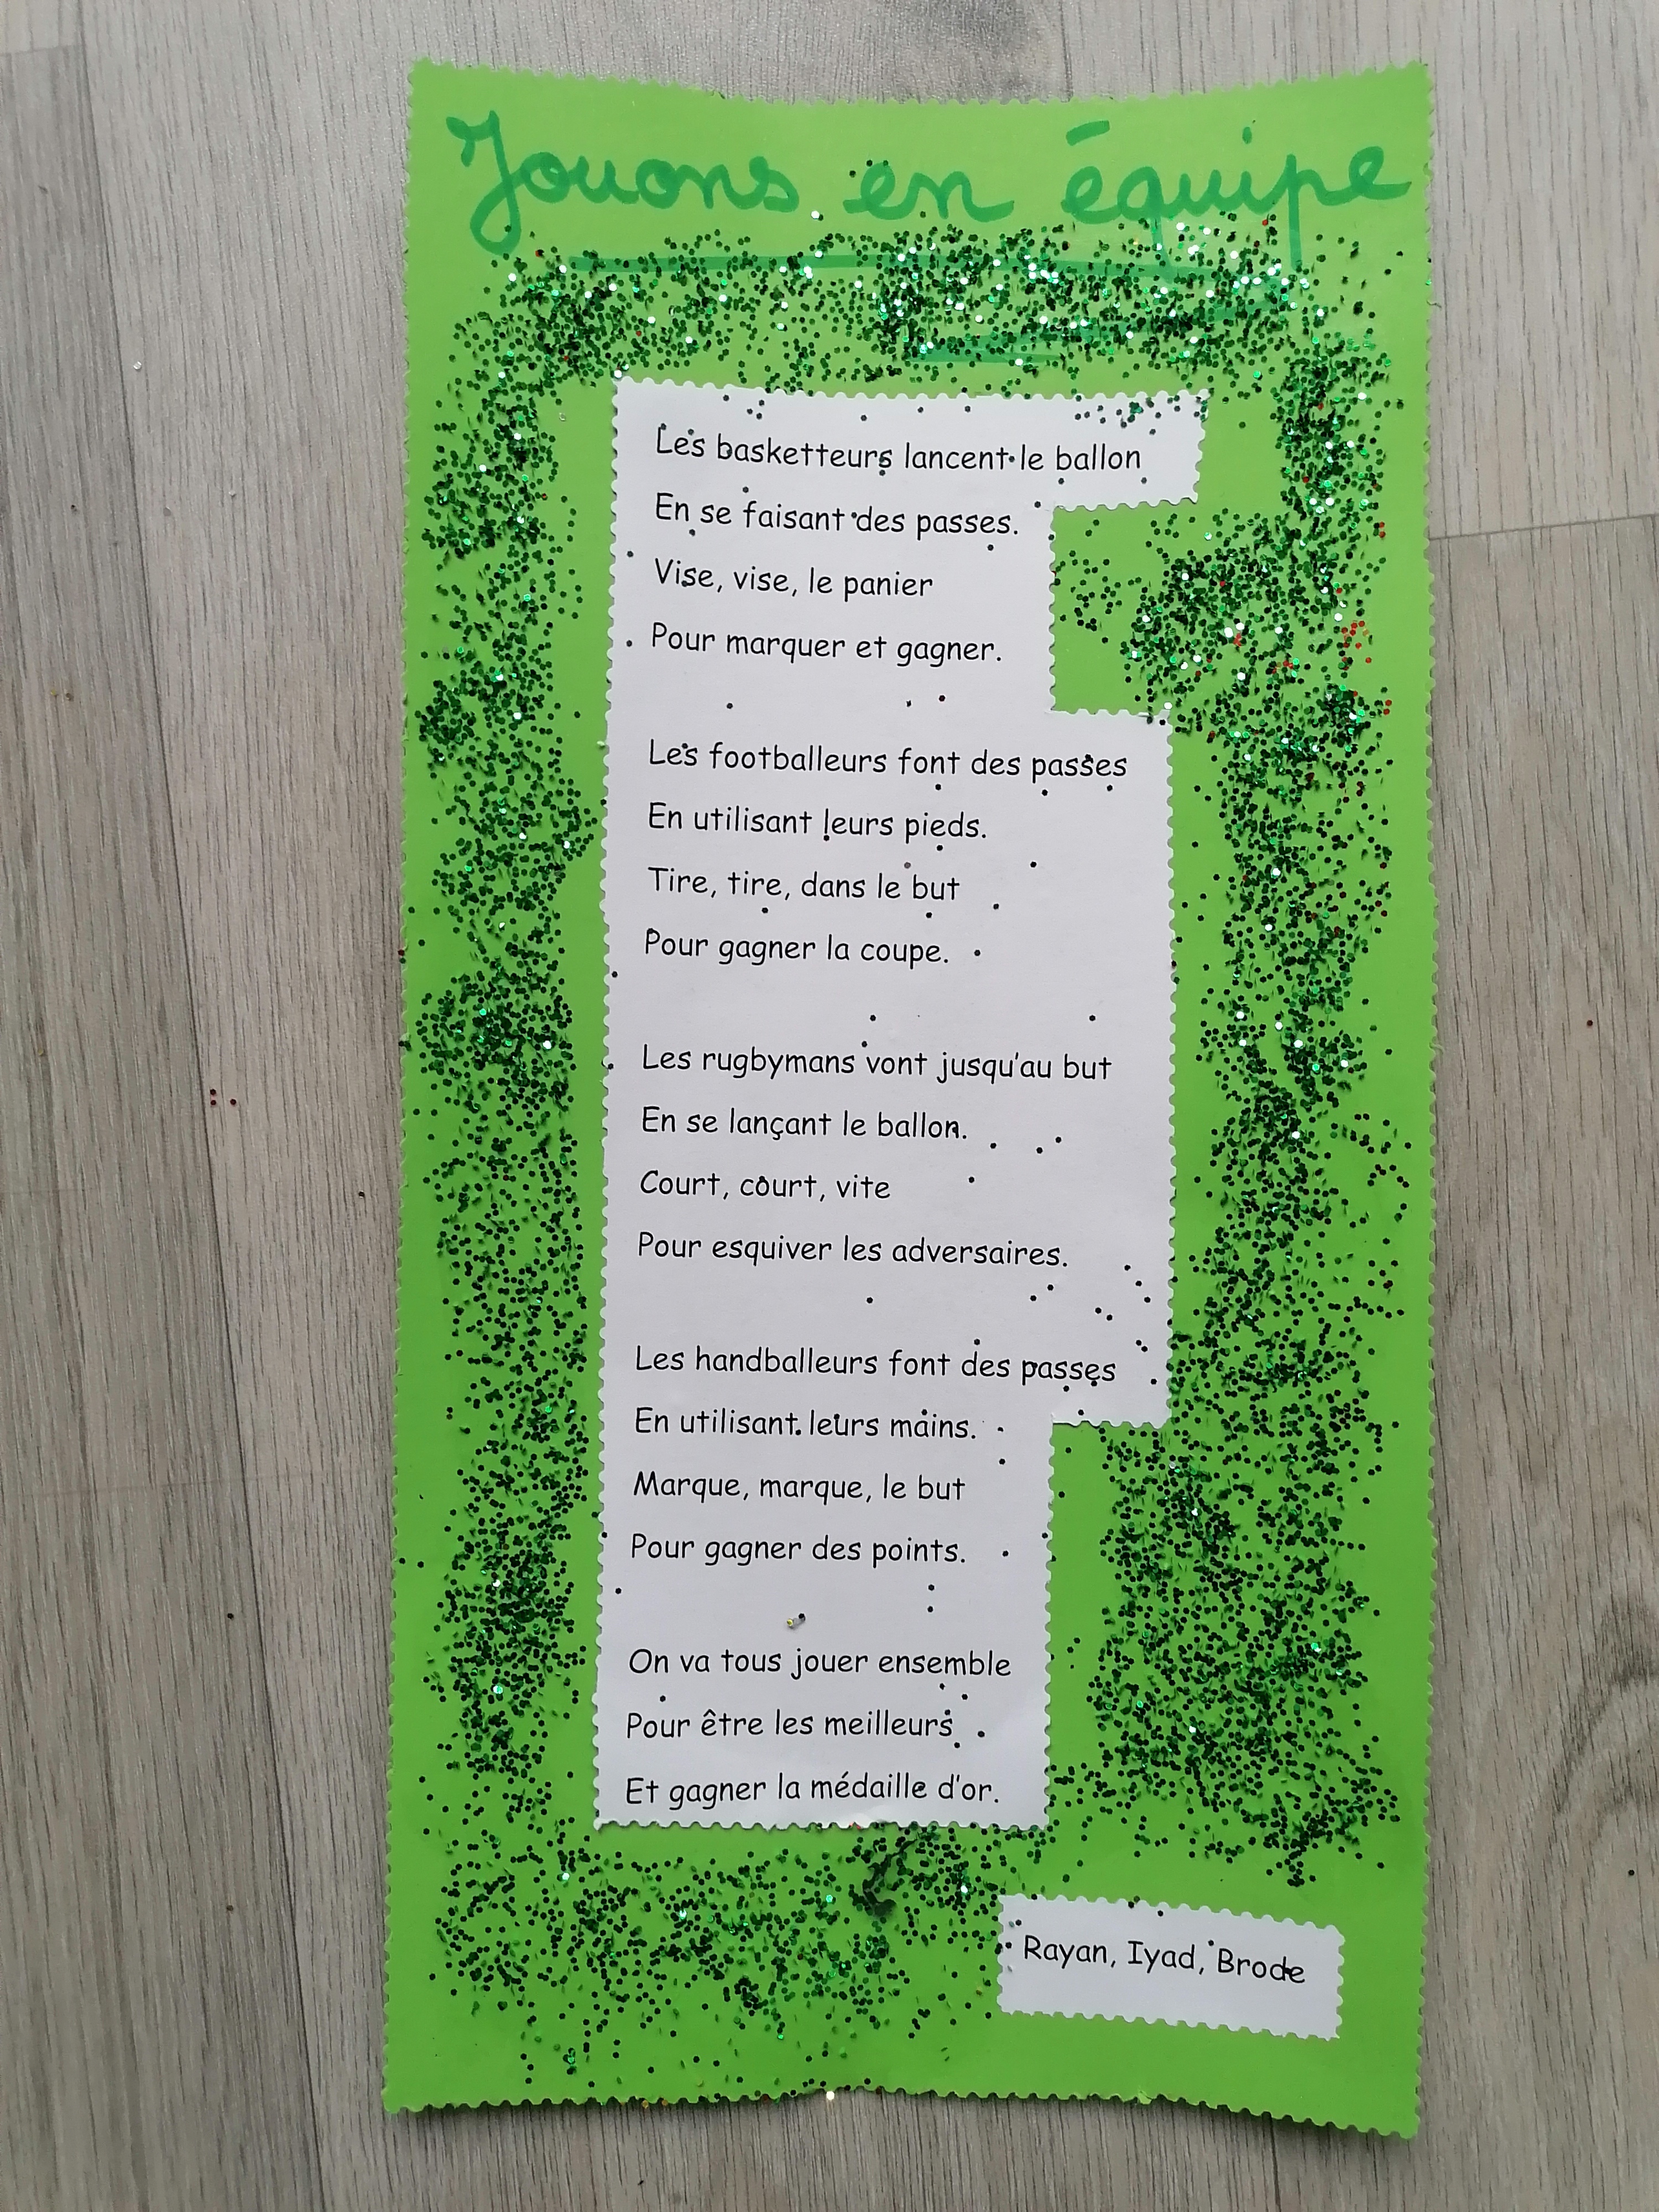 Jouons en équipe
Les basketteurs lancent le ballon
En se faisant des passes.
Vise, vise, le panier
Pour marquer et gagner.
Les footballeurs font des passes
En utilisant leurs pieds.
Tire, tire, dans le but
Pour gagner la coupe.
Les rugbymans vont jusqu'au but
En se lançant le ballon.
Court, court, vite
Pour esquiver les adversaires.
Les handballeurs font des passes
En utilisant leurs mains.
Marque, marque, le but
Pour gagner des points.
On va tous jouer ensemble
Pour être les meilleurs
Et gagner la médaille d'or.
Rayan, Iyad, Brode